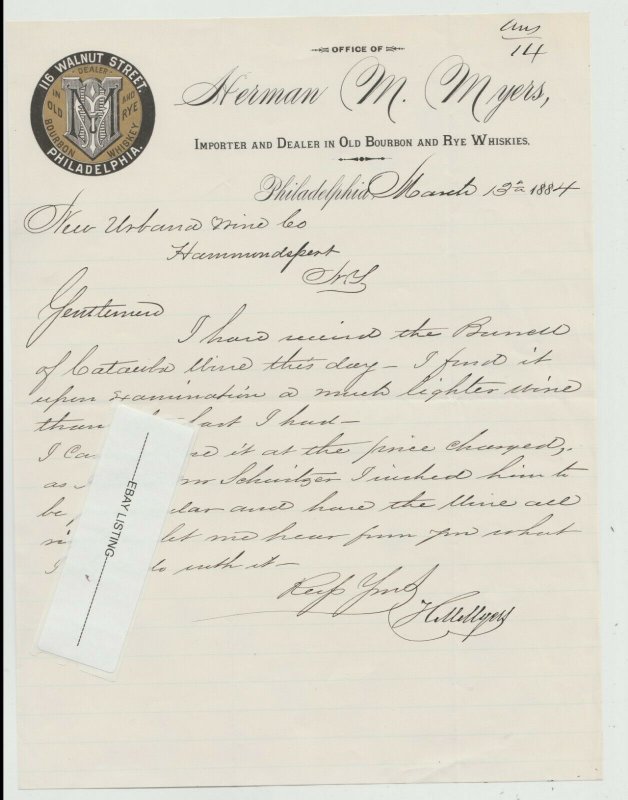 Ans
14
OFFICE OF
Herman M. Myers,
IMPORTER AND DEALER IN OLD BOURBON AND RYE WHISKIES.
116 WALNUT STREET.
DEALER
IN OLD BOURBON AND RYE WHISKEY
M
PHILADELPHIA.
Philadelphia, March 13th 1884
New Urbana Wine Co
Hammondsport
N.Y.
Gentlemen
I have received the Barrell
of Catawba Wine this day – I find it
upon examination a much lighter wine
than last I had –
I it at the price charged,
as Schwitzer I wished him to
be and have the Wine all
let me hear from you what
I do with it –
Resp Yours
H M Myers
EBAY LISTING